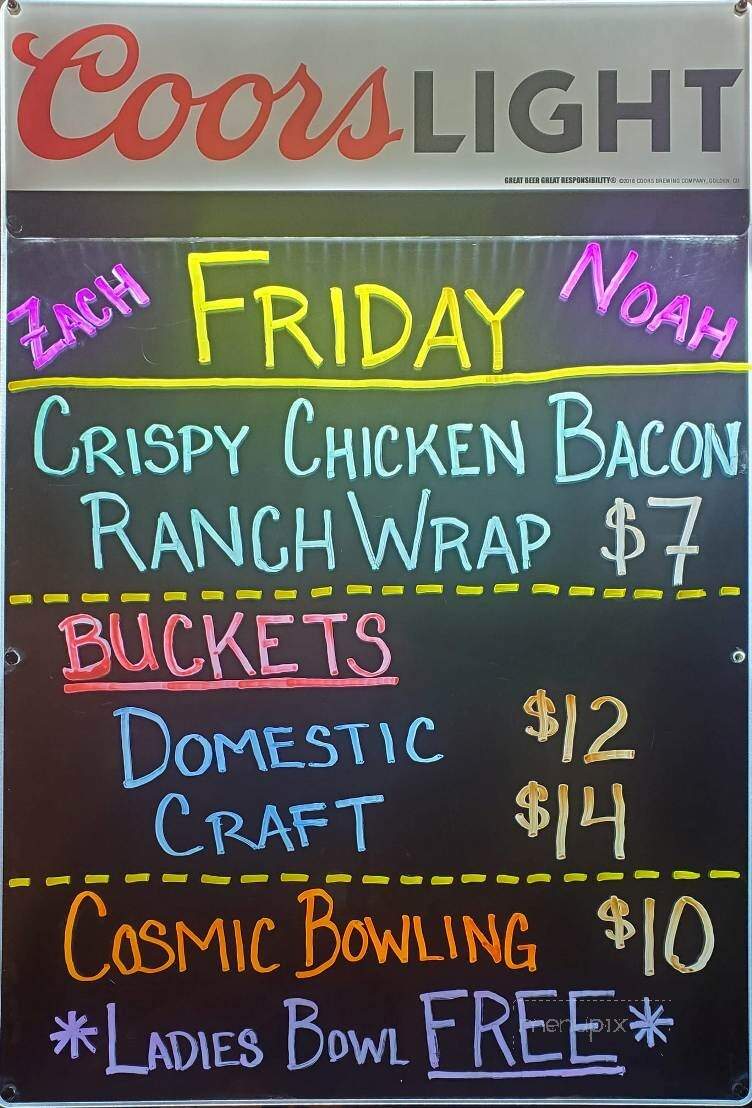 Coors LIGHT
GREAT BEER GREAT RESPONSIBILITY® ©2018 COORS BREWING COMPANY, GOLDEN, CO
ZACH FRIDAY NOAH
CRISPY CHICKEN BACON
RANCH WRAP $7
BUCKETS
DOMESTIC $12
CRAFT $14
COSMIC BOWLING $10
*LADIES BOWL FREE*
menupix